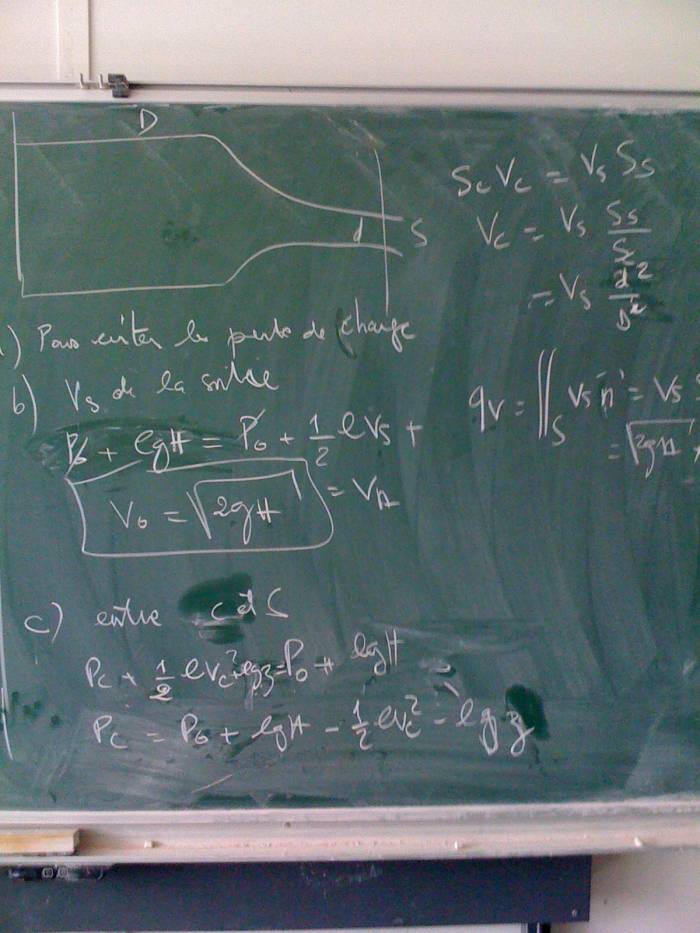 D
d
S
S_c V_c = V_s S_s
V_c = V_s S_s/S_c
= V_s d²/D²
) Pour éviter les perte de charge
b) V_s de la sortie
P_0 + ρgH = P_0 + 1/2 ρV_s +
V_0 = √2gH = V_A
q_v = ∬_S V_s n = V_s S
= √2gH
c) entre C et S
P_c + 1/2 ρV_c² + ρgz = P_0 + ρgH
P_c = P_0 + ρgH - 1/2 ρV_c² - ρgz